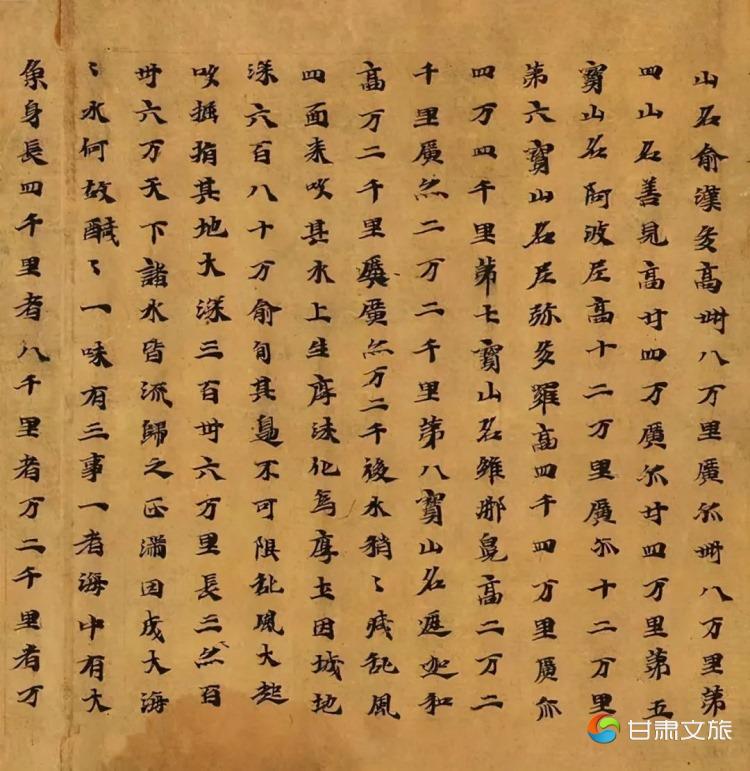 山名俞漢多高卌八万里廣亦卌八万里第
四山名善見高廿四万廣亦廿四万里第五
寶山名阿波尼高十二万里廣亦十二万里
第六寶山名尼弥多羅高四千四万里廣亦
四万四千里第七寶山名維那兜高二万二
千里廣亦二万二千里第八寶山名遮迦和
高万二千里廣亦万二千後水稍〻減乱風
四面来吹其水上生厚沫化為厚土因城地
深六百八十万俞旬其邊不可限乱風大起
吹掘指其地大深三百卅六万里長三亦百
卅六万天下諸水皆流歸之正滿因成大海
〻水何故醎〻一味有三事一者海中有大
魚身長四千里者八千里者万二千里者万
甘肃文旅